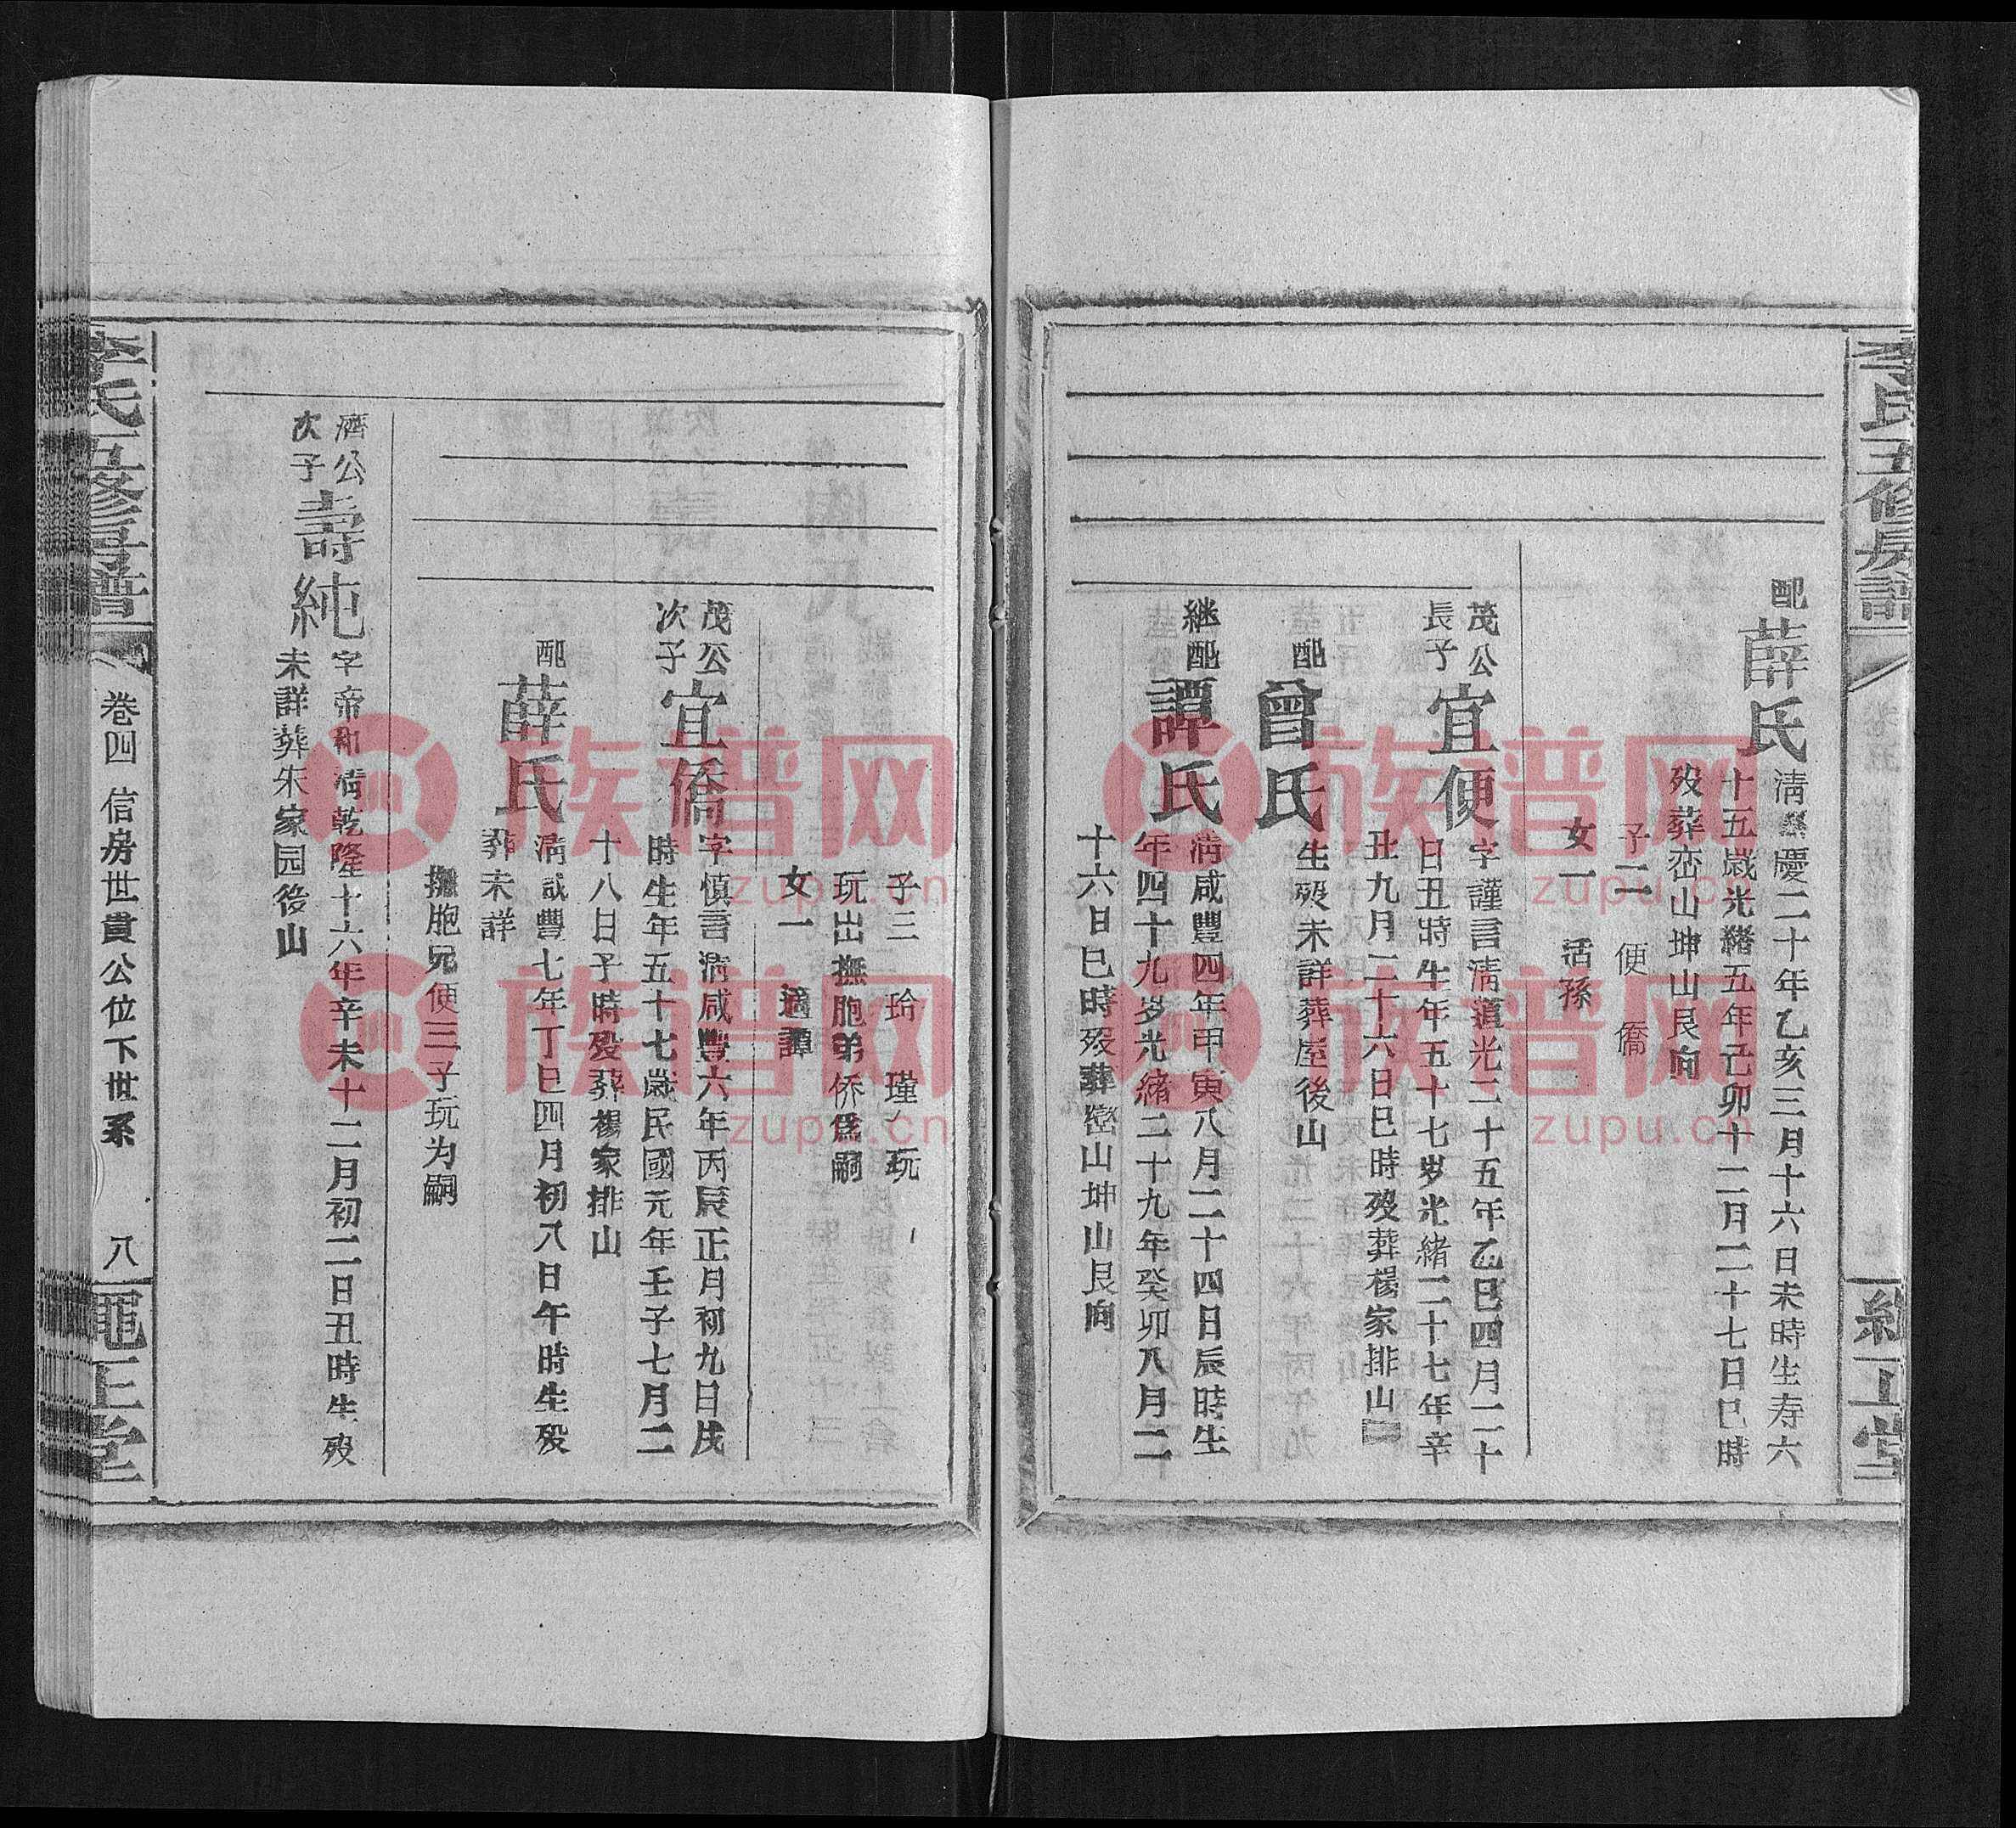 李氏五修房譜
配薛氏
清嘉慶二十年乙亥三月十六日未時生寿六
十五歲光緒五年己卯十二月二十七日巳時
歿葬峦山坤山艮向
子二 便 僑
女一 活孫
茂公
長子
宜便
字謹言清道光二十五年乙巳四月二十
日丑時生年五十七岁光緒二十七年辛
丑九月二十六日巳時歿葬楊家排山
配曾氏
生歿未詳葬屋後山
継配譚氏
清咸豐四年甲寅八月二十四日辰時生
年四十九岁光緒二十九年癸卯八月二
十六日巳時歿葬巒山坤山艮向
子三 玲 瑾 玩
玩出撫胞弟侨爲嗣
女一 適譚
茂公
次子
宜僑
字慎言清咸豐六年丙辰正月初九日戌
時生年五十七歲民國元年壬子七月二
十八日子時歿葬楊家排山
配薛氏
清咸豐七年丁巳四月初八日午時生歿
葬未詳
撫胞兄便三子玩为嗣
濟公
次子
壽純
字帝和清乾隆十六年辛未十二月初二日丑時生歿
未詳葬朱家园後山
李氏五修房譜
卷四 信房世貴公位下世系 八
正堂
族谱网
zupu.cn
族谱网
zupu.cn
族谱网
zupu.cn
族谱网
zupu.cn